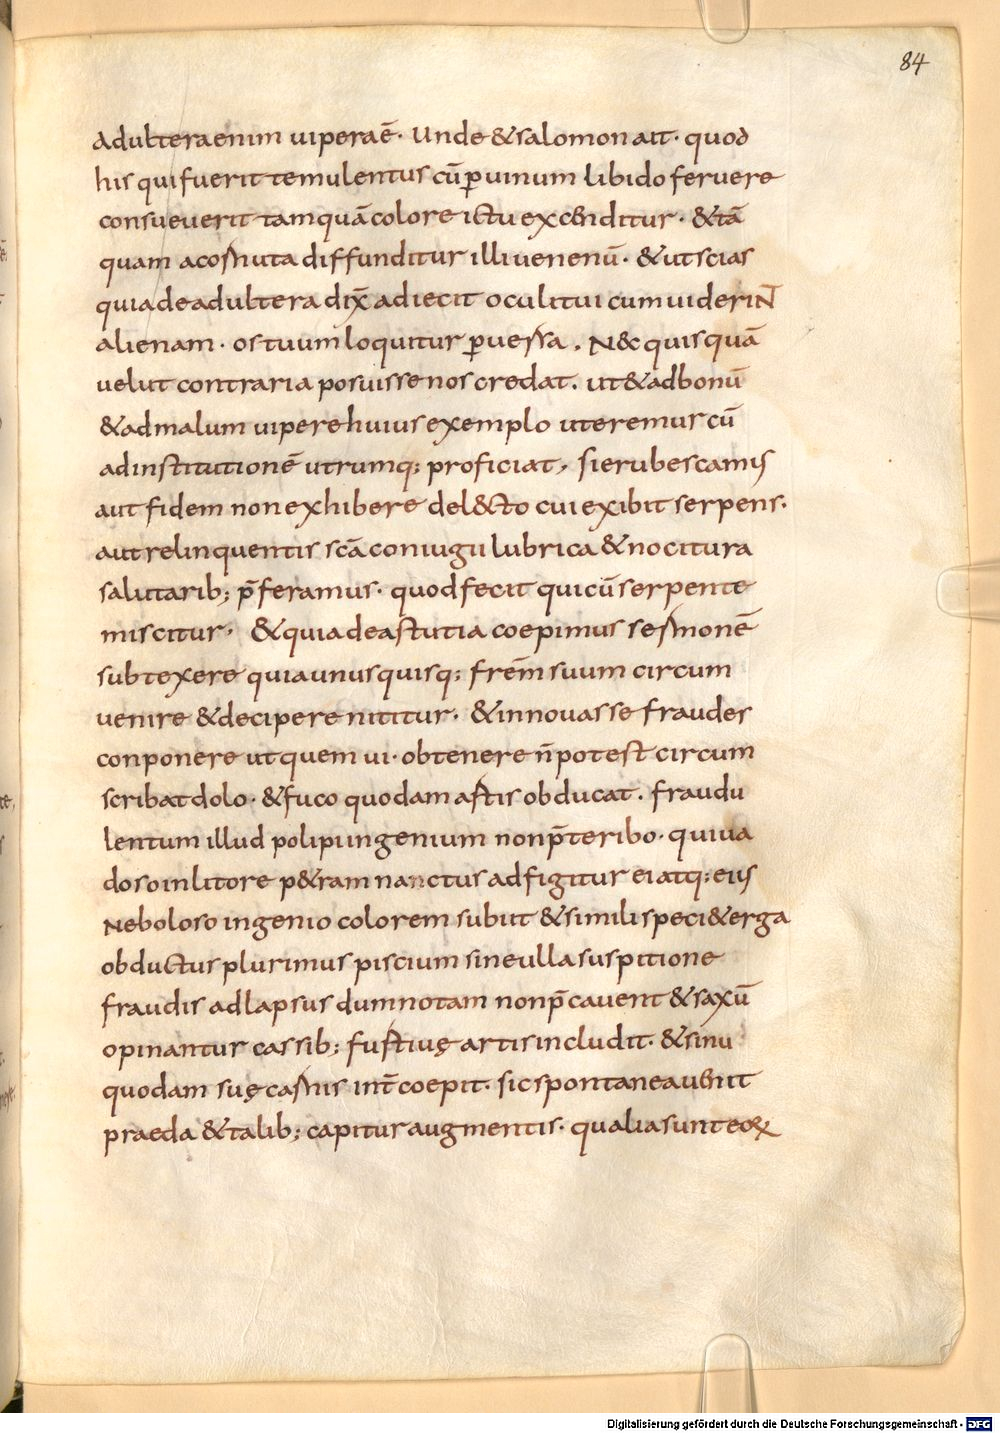 84
Adulteraenim uiperaē· Unde &salomon ait· quod
his quifuerit temulentus cū ꝑuinum libido feruere
consueuerit tamquā colore ictu exc&nditur· &tā
quam acornuta diffunditur illi uenenū· &utscias
quiadeadultera dix̄ adiecit oculitui cumuiderint
alienam· ostuum loquitur ꝑuersa. N&c quisquā
uelut contraria posuissenos credat. ut&adbonū
&admalum uiperehuius exemplo uteremur cū
adinstitutionē utrumq; proficiat, sierubescamis
aut fidem nonexhibere del&cto cui exibit serpens·
aut relinquentis scā coniugii lubrica &nocitura
salutarib; p̄feramus· quodfecit quicū serpente
miscitur· &quiadeastutia coepimus sermonē
subtexere quiaunusquisq; frēm suum circum
uenire &decipere nititur· &innouasse fraudes
conponere utquem ui· obtenere n̄ potest circum
scribat dolo· &fuco quodam artis obducat. fraudu
lentum illud polipi ingenium nonp̄teribo· quiua
dosoinlitore p&ram nanctus adfigitur ei atq; eius
Neboloso ingenio colorem subiit &simili speci&erga
obductus plurimus piscium sineulla suspitione
fraudis adlapsus dumnotam nonp̄cauent &saxū
opinantur cassib; furtiuę artis includit· &sinu
quodam suę carnis int̄coepit· sic spontanea uenit
praeda &talib; capitur augmentis· qualia sunt eoꝝ
Digitalisierung gefördert durch die Deutsche Forschungsgemeinschaft - DFG